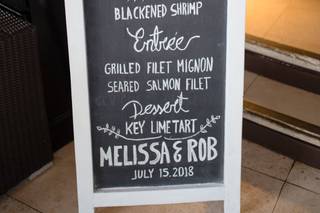 BLACKENED SHRIMP
Entrée
GRILLED FILET MIGNON
SEARED SALMON FILET
Dessert
KEY LIME TART
MELISSA & ROB
JULY 15.2018